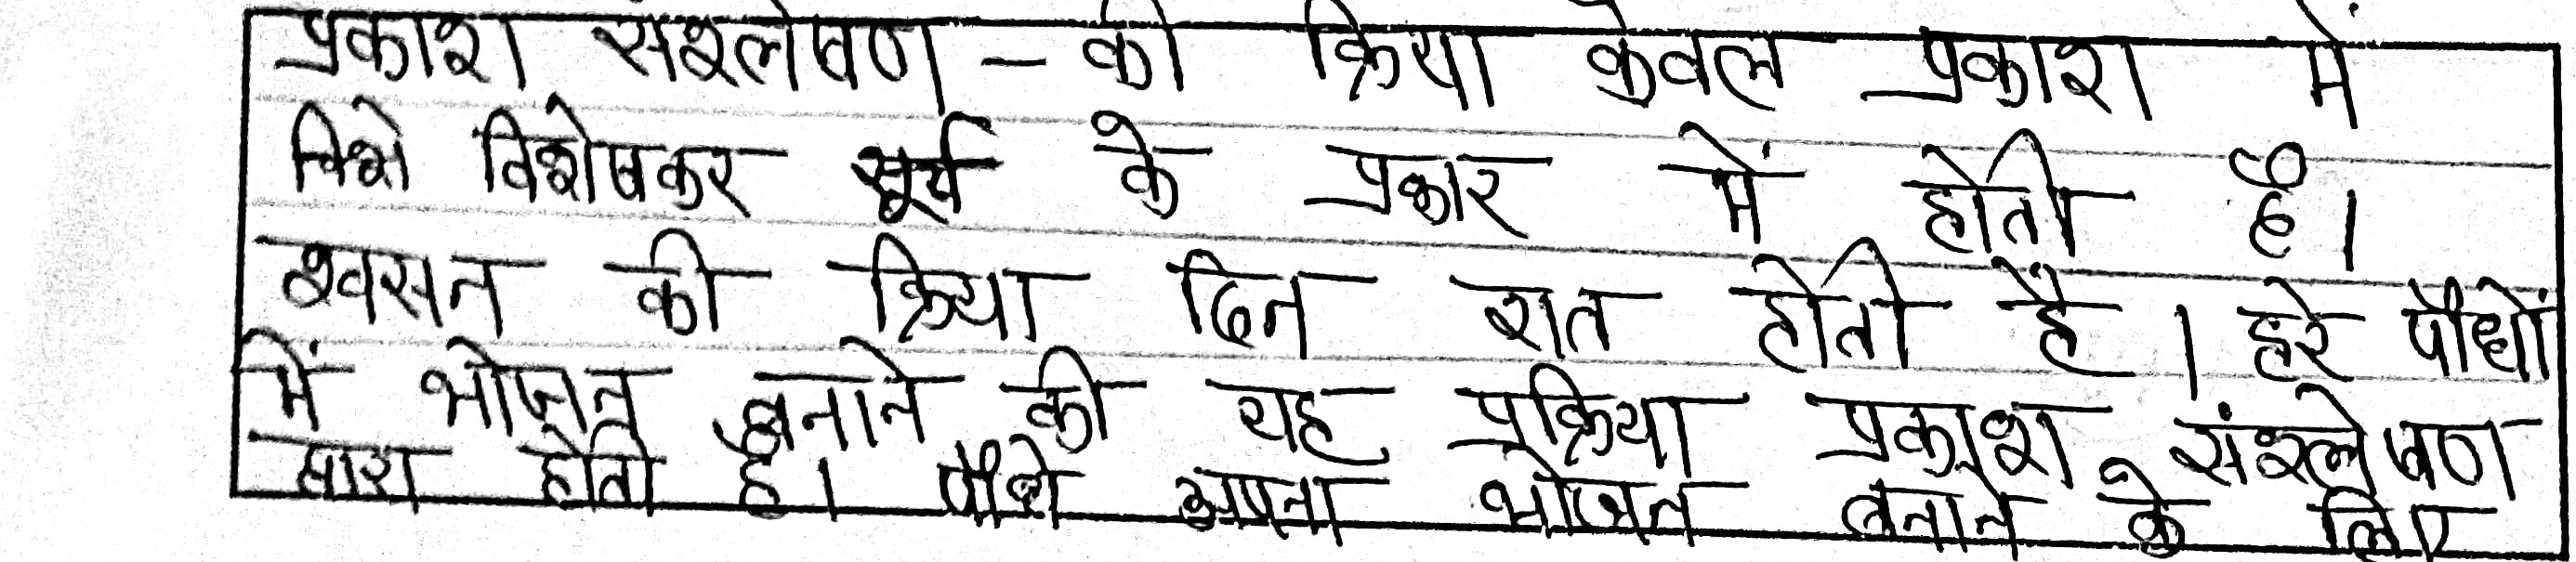 प्रकाश संश्लेषण - की क्रिया केवल प्रकाश में
विशे विशेषकर सूर्य के प्रकार में होती है।
श्वसन की क्रिया दिन रात होती है। हरे पौधों
में भोजन बनाने की यह प्रक्रिया प्रकाश संश्लेषण
होती है। पौधे अपना भोजन बनाने के लिए